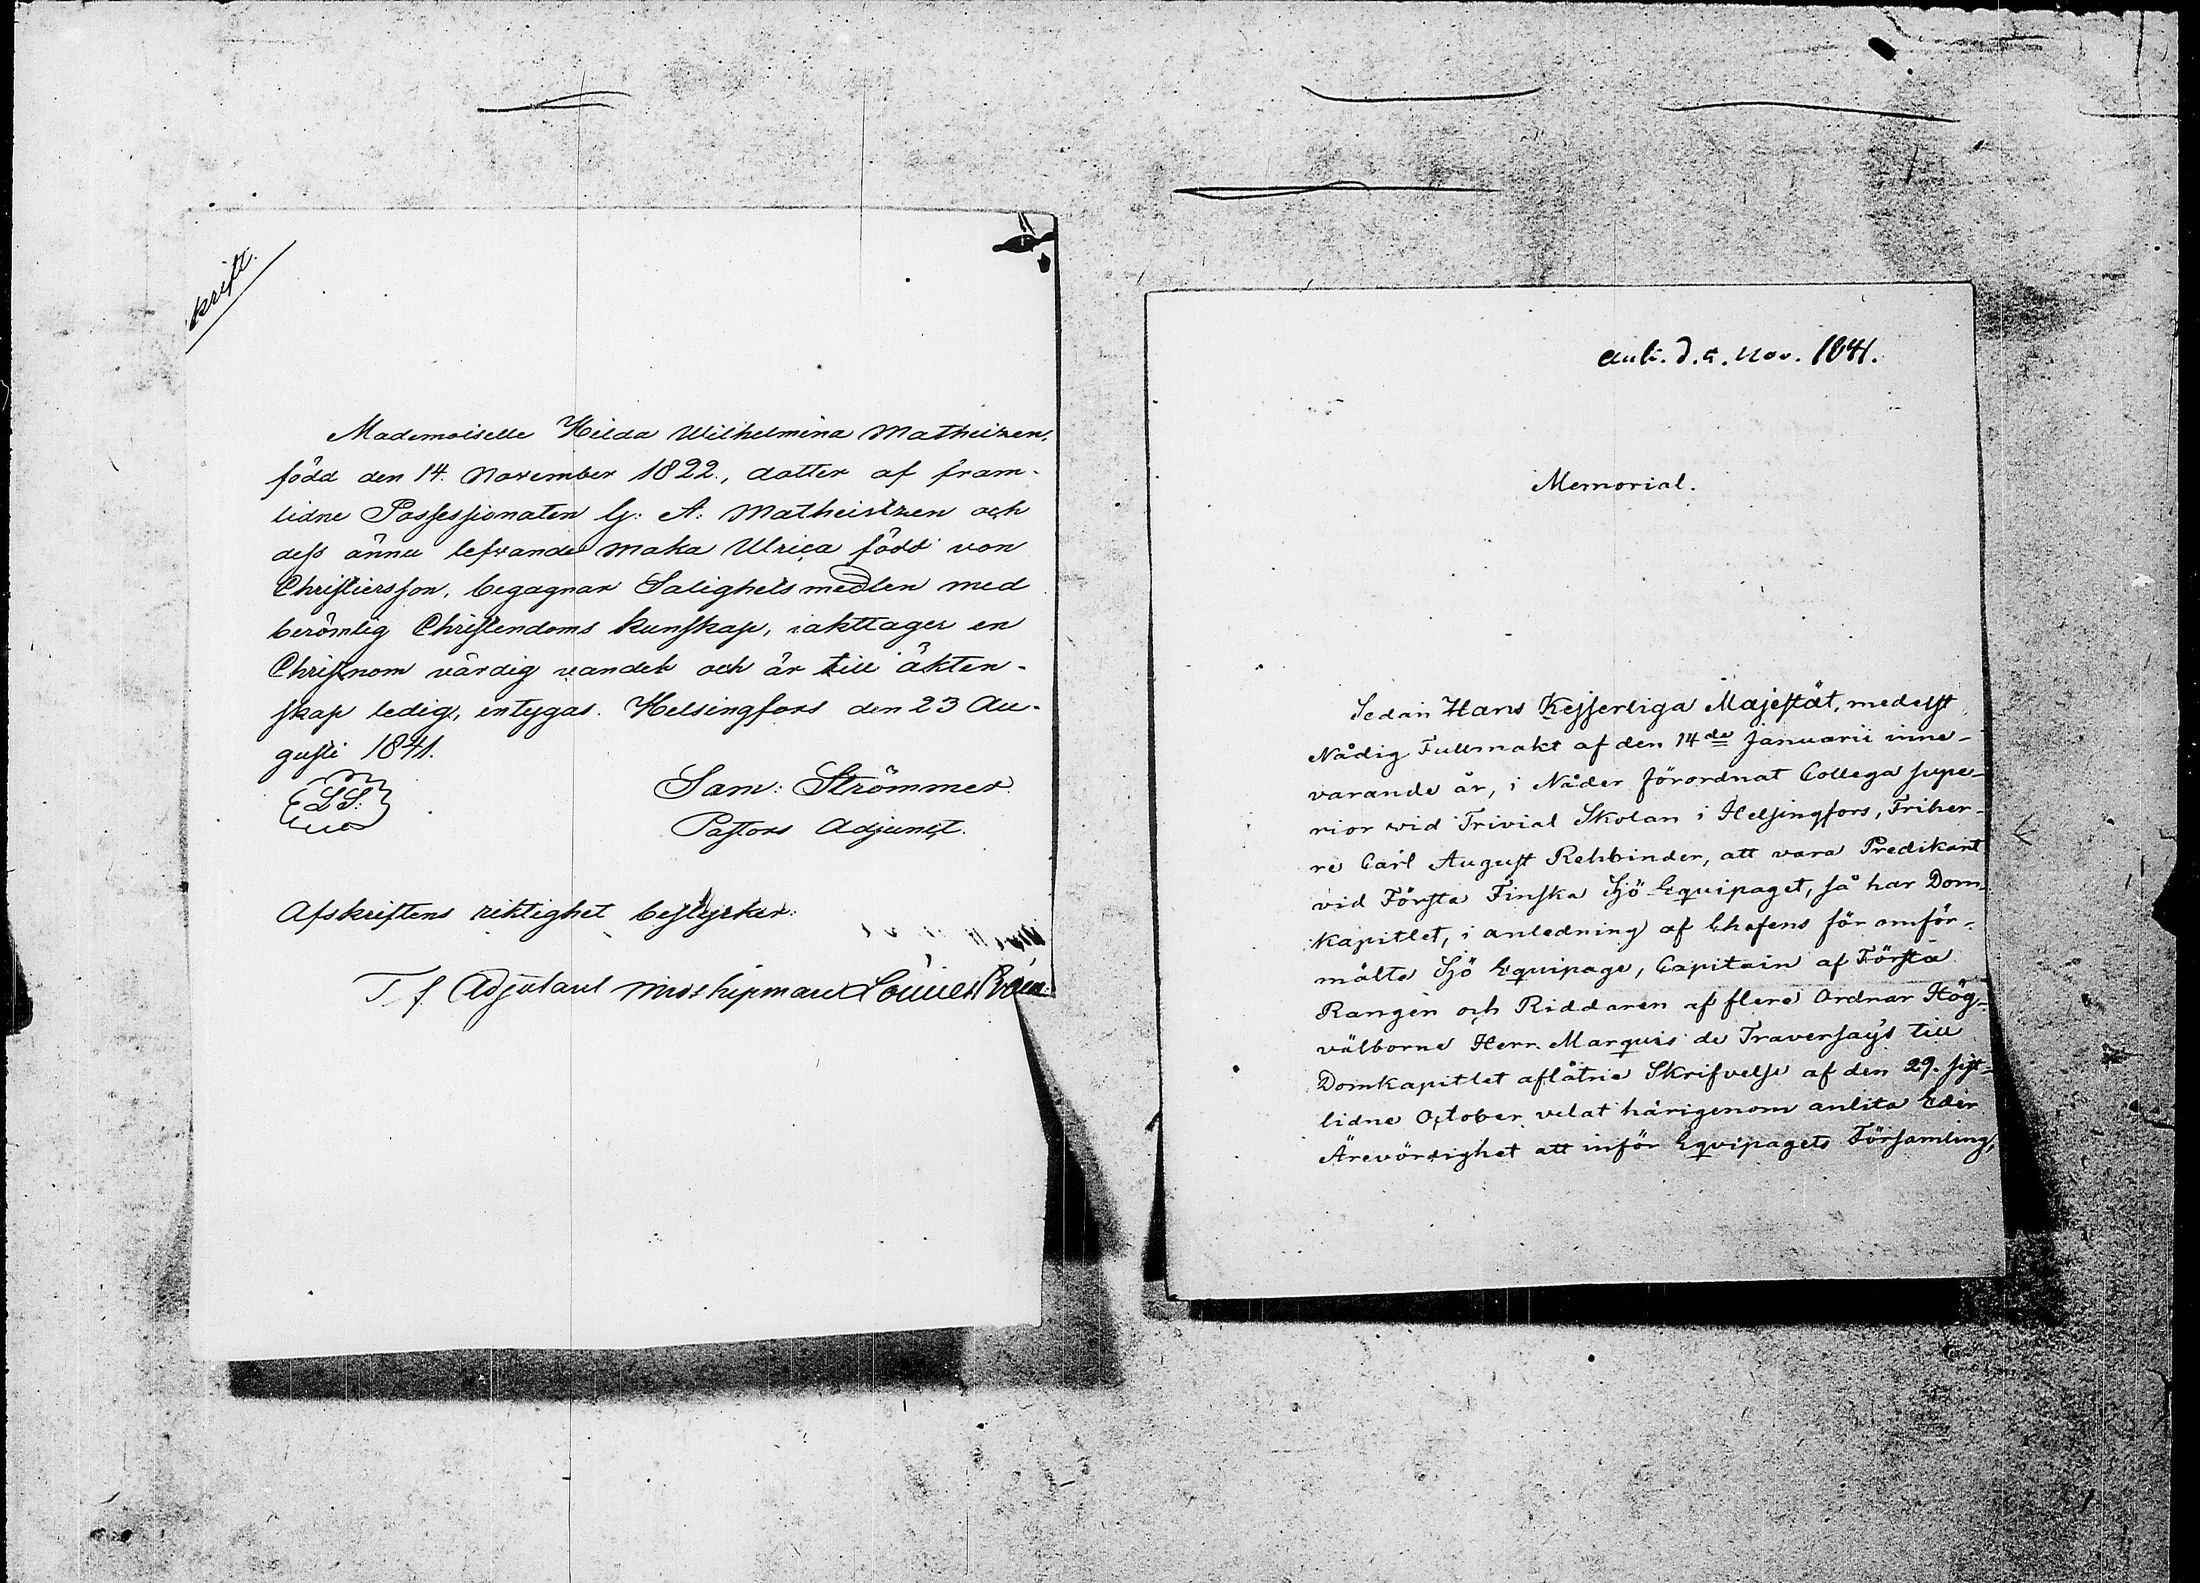 krift.
Mademoiselle Hilda Wilhelmina Matheizen,
född den 14. November 1822., dotter af fram-
lidne Possessionaten G: A: Matheiszen och
dess ännu lefvande maka Ulrica född von
Christiersson, begagnar Salighetsmedlen med
berömlig Christendoms kunskap, iakttager en
Christnom värdig vandel och är till äkten-
skap ledig, intygas. Helsingfors den 23 Au-
gusti 1841.
LS:
Sam: Strömmer
Pastors Adjunct.
Afskriftens riktighet bestyrker:
T. f. Adjutant Midshipman
ank. d. 5. Nov. 1841.
Memorial.
Sedan Hans Kejserliga Majestät, medelst
Nådig Fullmakt af den 14de Januarii inne-
varande år, i Nåder förordnat Collega supe-
rior vid Trivial Skolan i Helsingfors, Friher-
re Carl August Rehbinder, att vara Predikant
vid Första Finska Sjö Equipaget, så har Dom-
kapitlet, i anledning af Chefens för omför-
mälte Sjö Equipage, Capitain af Första
Rangen och Riddaren af flere Ordnar Hög-
välborne Herr Marquis de Traversays till
Domkapitlet aflåtne Skrifvelse af den 29. sist-
lidne October velat härigenom anlita Eder
Ärevördighet att inför Equipagets Församling,